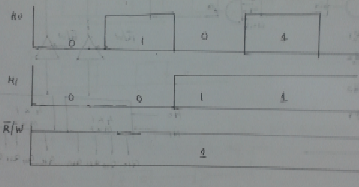 A0
0 1 0 1
A1
0 0 1 1
R̅/W
1